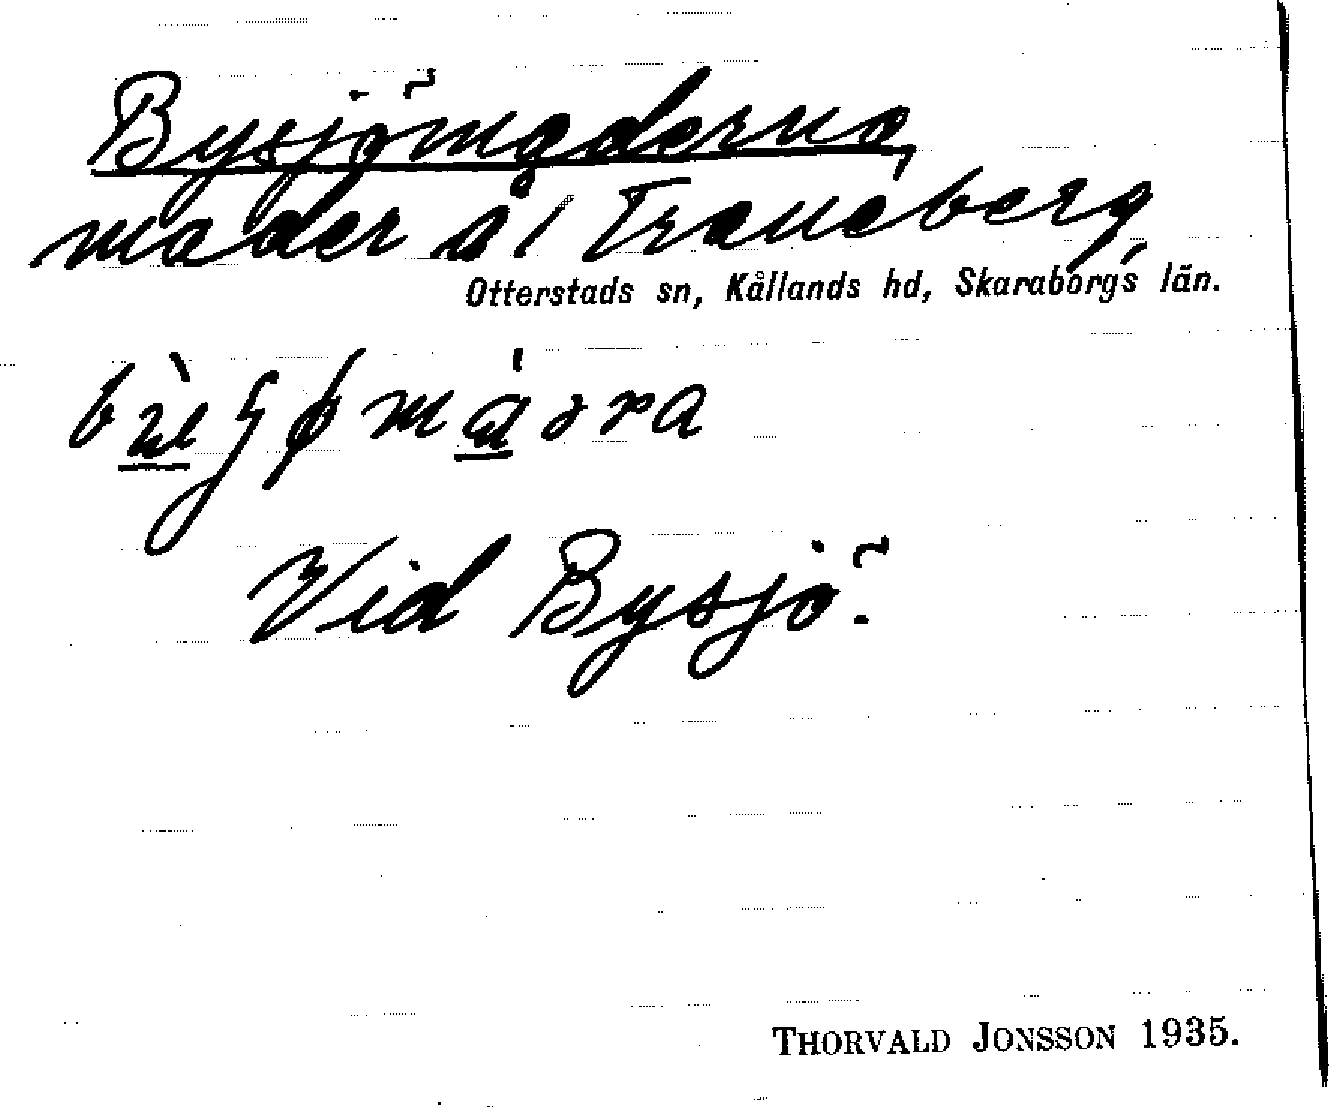 Bysjömaderna,
mader å/ Traneberg,
Otterstads sn, Kållands hd, Skaraborgs län.
Vid Bysjö.
THORVALD JONSSON 1935.